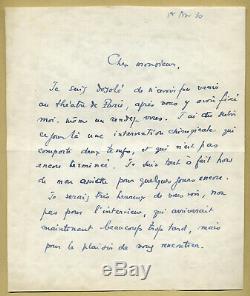 1er Nov 30
Cher monsieur,
Je suis désolé de n'avoir pu venir
au théâtre de Paris, après vous y avoir fixé
moi-même un rendez-vous. J'ai dû subir
ce jour là une intervention chirurgicale qui
comporte deux temps, et qui n'est pas
encore terminée. Je suis tout à fait hors
de mon assiette pour quelques jours encore.
Je serais très heureux de vous voir, non
pas pour l'interview, qui arriverait
maintenant beaucoup trop tard, mais
pour le plaisir de vous rencontrer.